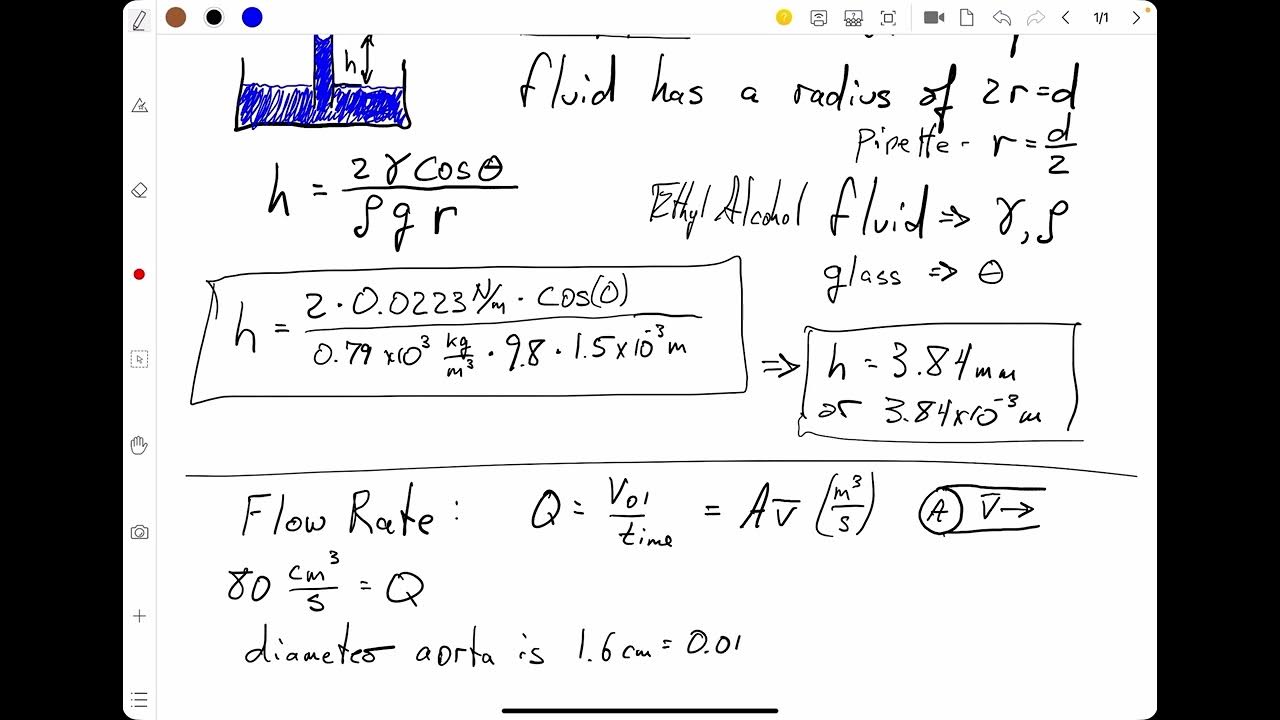 1/1
h
fluid has a radius of 2r=d
Pipette - r = d/2
h = 2γcosθ / ρgr
Ethyl Alcohol fluid => γ, ρ
glass => θ
h = 2 · 0.0223 N/m · cos(0) / 0.79 x10³ kg/m³ · 9.8 · 1.5 x 10⁻³ m
=> h = 3.84mm
or 3.84x10⁻³ m
Flow Rate: Q = Vol/time = Av̅ (m³/s) A v̅→
80 cm³/s = Q
diameter aorta is 1.6cm = 0.01